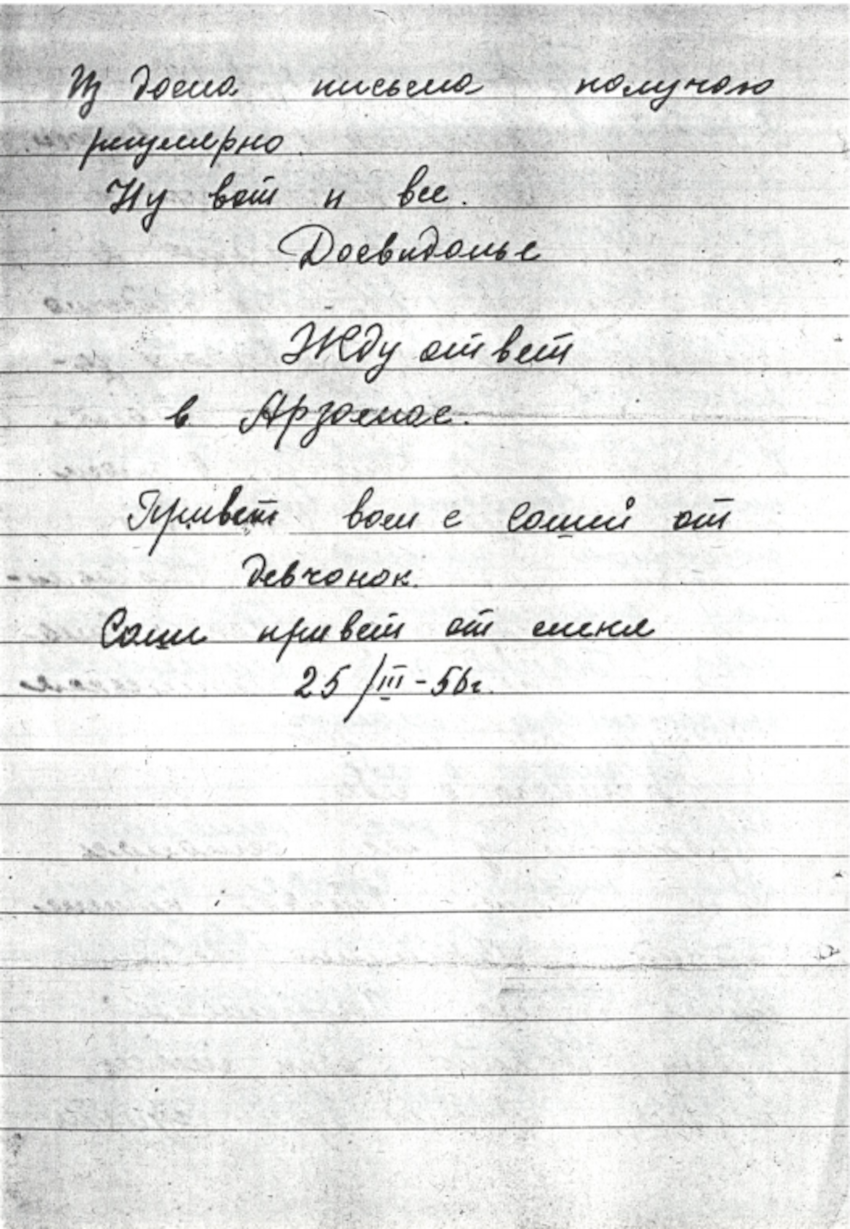 Из дома письма получаю
регулярно.
Ну вот и все.
Досвиданье
Жду ответ
в Арзамас.
Привет вам с Сашей от
девчонок.
Саше привет от меня
25/III-56г.